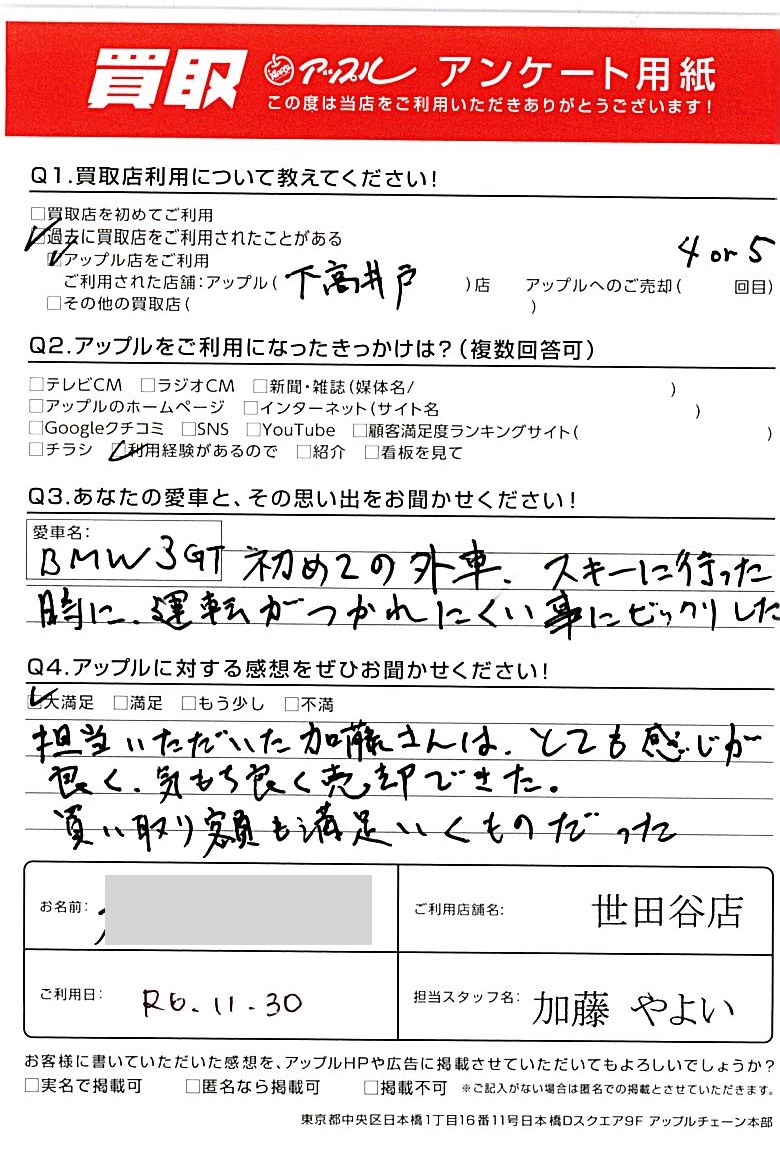 買取 アップル アンケート用紙
この度は当店をご利用いただきありがとうございます!
Q1.買取店利用について教えてください!
□買取店を初めてご利用
☑過去に買取店をご利用されたことがある
☑アップル店をご利用
ご利用された店舗:アップル(下高井戸)店 アップルへのご売却(4 or 5回目)
□その他の買取店( )
Q2.アップルをご利用になったきっかけは?(複数回答可)
□テレビCM □ラジオCM □新聞・雑誌(媒体名/ )
□アップルのホームページ □インターネット(サイト名 )
□Googleクチコミ □SNS □YouTube □顧客満足度ランキングサイト( )
□チラシ ☑利用経験があるので □紹介 □看板を見て
Q3.あなたの愛車と、その思い出をお聞かせください!
愛車名:
BMW 3GT 初めての外車、スキーに行った
時に、運転がつかれにくい事にビックリした
Q4.アップルに対する感想をぜひお聞かせください!
☑大満足 □満足 □もう少し □不満
担当いただいた加藤さんは、とても感じが
良く、気もち良く売却できた。
買い取り額も満足いくものだった
お名前: ご利用店舗名: 世田谷店
ご利用日: R6.11.30 担当スタッフ名: 加藤 やよい
お客様に書いていただいた感想を、アップルHPや広告に掲載させていただいてもよろしいでしょうか?
□実名で掲載可 □匿名なら掲載可 □掲載不可 ※ご記入がない場合は匿名での掲載とさせていただきます。
東京都中央区日本橋1丁目16番11号日本橋Dスクエア9F アップルチェーン本部